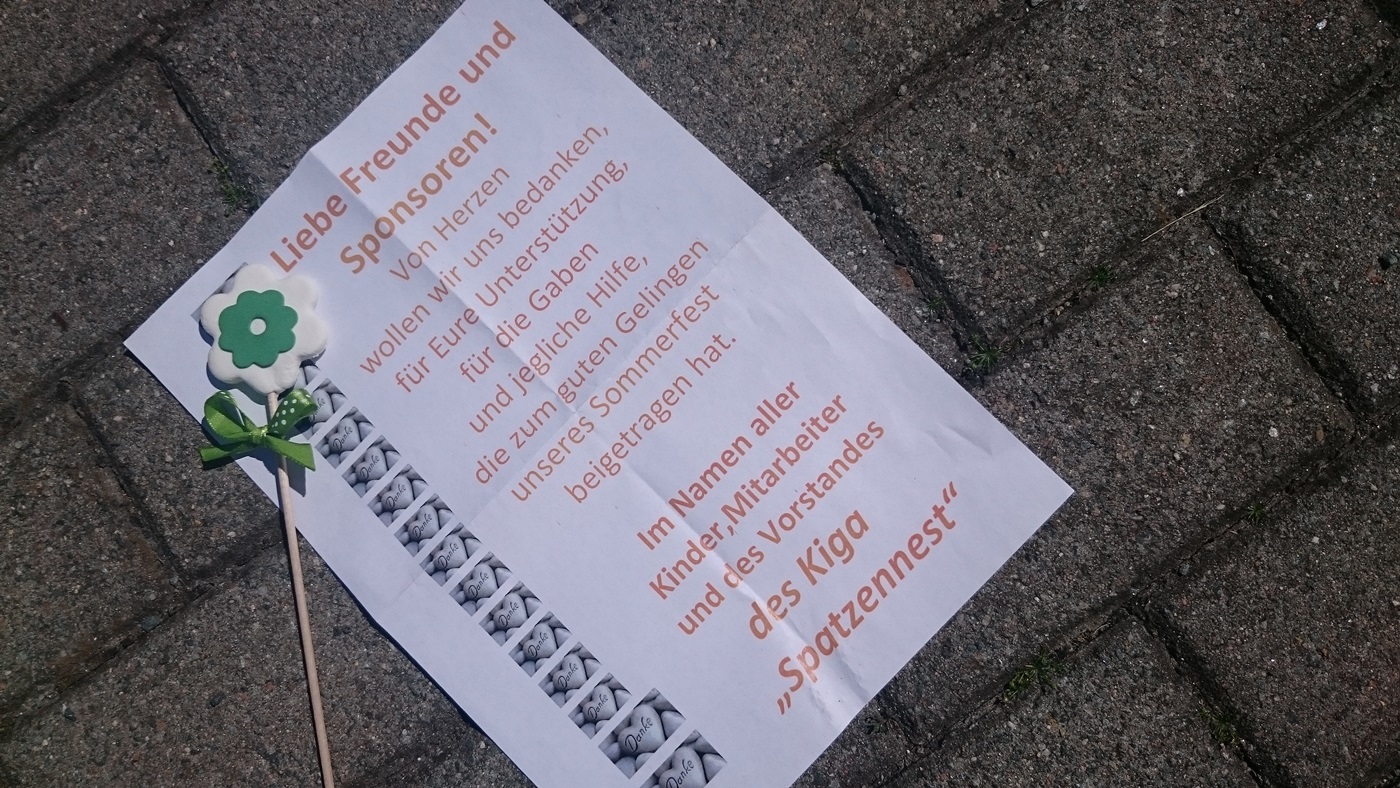 Liebe Freunde und
Sponsoren!
Von Herzen
wollen wir uns bedanken,
für Eure Unterstützung,
für die Gaben
und jegliche Hilfe,
die zum guten Gelingen
unseres Sommerfest
beigetragen hat.
Im Namen aller
Kinder,Mitarbeiter
und des Vorstandes
des Kiga
„Spatzennest“
Danke
Danke
Danke
Danke
Danke
Danke
Danke
Danke
Danke
Danke
Danke
Danke